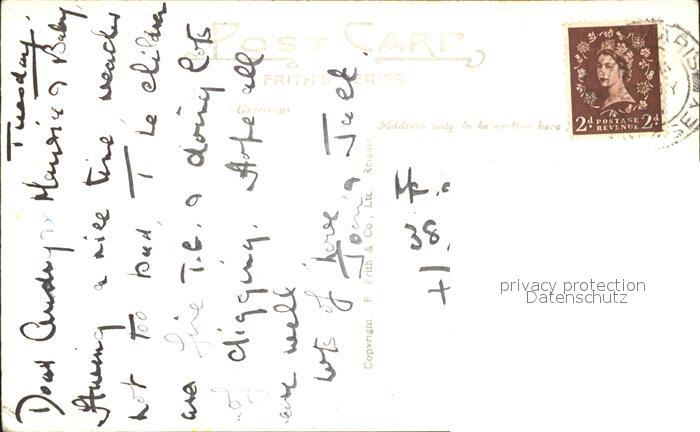 Tuesday.
Dear Audrey Maurice & Baby,
Having a nice time, weather
not too bad. The children
are fine T.G. & doing lots
of digging. Hope all
are well
lots of love
Joan & Jack.
POST CARD
FRITH'S SERIES
Greetings
Address only to be written here
Copyright F. Frith & Co., Ltd. Reigate
2d POSTAGE REVENUE 2d
privacy protection
Datenschutz